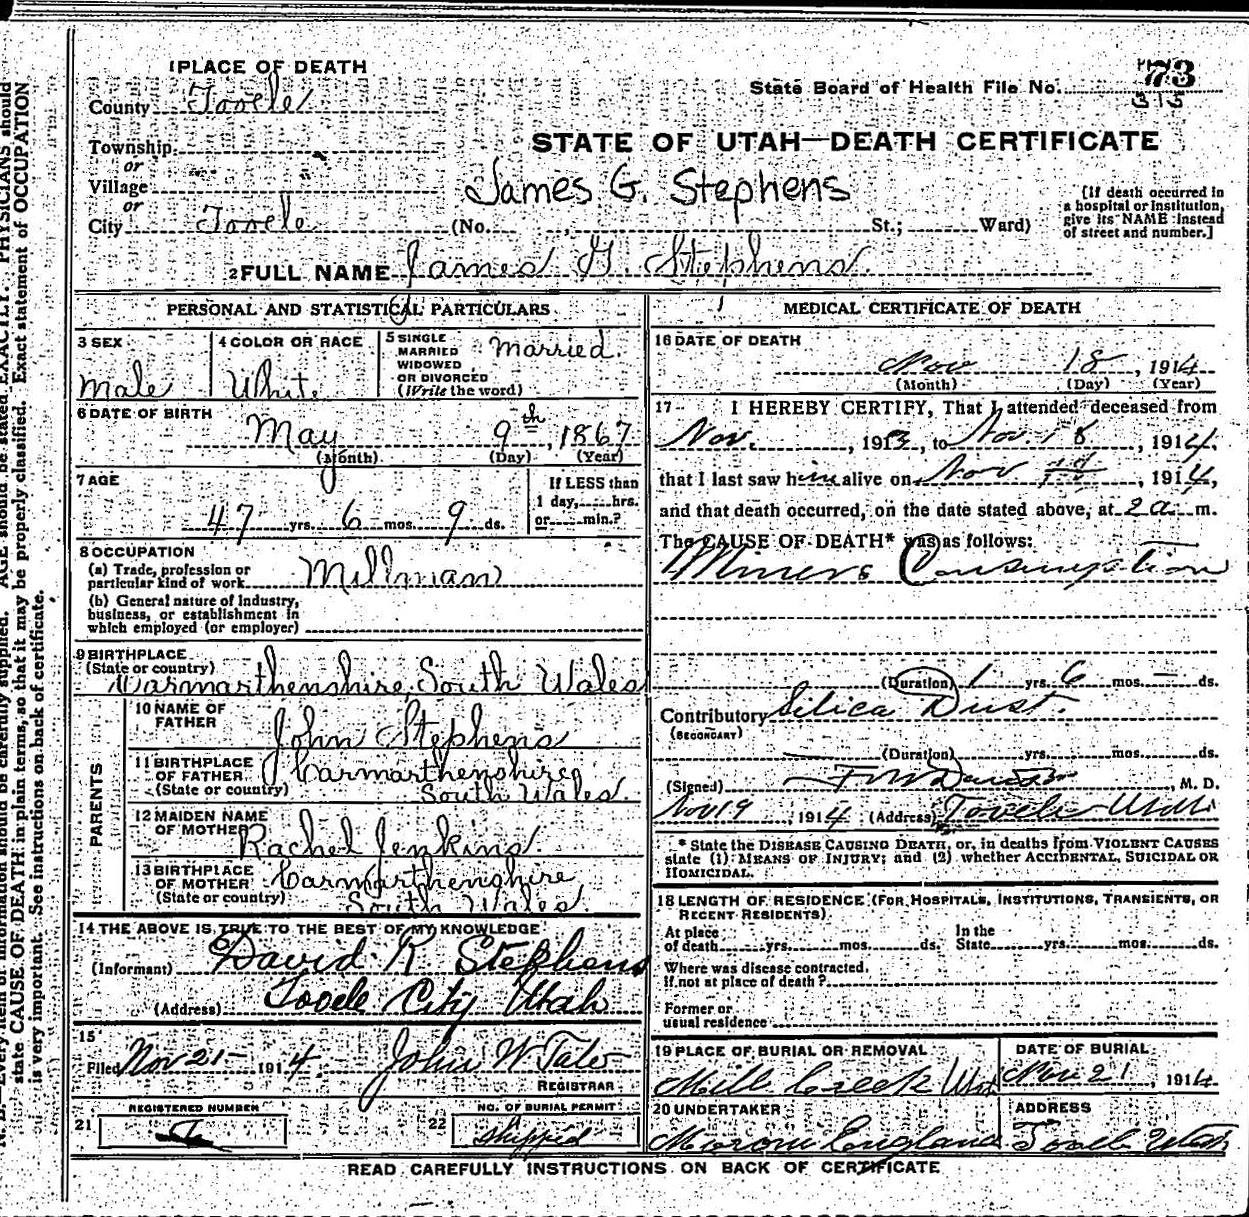 1 PLACE OF DEATH
County Tooele
Township
or
Village
or
City Tooele (No. , St.; Ward)
State Board of Health File No. 73
315
STATE OF UTAH—DEATH CERTIFICATE
James G. Stephens
[If death occurred in
a hospital or institution,
give its NAME instead
of street and number.]
2 FULL NAME James G. Stephens.
PERSONAL AND STATISTICAL PARTICULARS
3 SEX
Male
4 COLOR OR RACE
White
5 SINGLE
MARRIED
WIDOWED
OR DIVORCED
(Write the word)
Married.
6 DATE OF BIRTH
May 9th, 1867
(Month) (Day) (Year)
7 AGE
47 yrs. 6 mos. 9 ds.
If LESS than
1 day, hrs.
or min.?
8 OCCUPATION
(a) Trade, profession or
particular kind of work Millman
(b) General nature of industry,
business, or establishment in
which employed (or employer)
9 BIRTHPLACE
(State or country)
Carmarthenshire, South Wales
PARENTS
10 NAME OF
FATHER
John Stephens
11 BIRTHPLACE
OF FATHER
(State or country)
Carmarthenshire
South Wales.
12 MAIDEN NAME
OF MOTHER
Rachel Jenkins.
13 BIRTHPLACE
OF MOTHER
(State or country)
Carmarthenshire
South Wales.
14 THE ABOVE IS TRUE TO THE BEST OF MY KNOWLEDGE
(Informant) David R. Stephens
(Address) Tooele City Utah
15
Filed Nov 21 - 1914. John W Tate
REGISTRAR
REGISTERED NUMBER
21
NO. OF BURIAL PERMIT
22 shipped
MEDICAL CERTIFICATE OF DEATH
16 DATE OF DEATH
Nov 18, 1914
(Month) (Day) (Year)
17 I HEREBY CERTIFY, That I attended deceased from
Nov. , 1913, to Nov. 18, 1914.
that I last saw him alive on Nov 18, 1914,
and that death occurred, on the date stated above, at 2 a. m.
The CAUSE OF DEATH* was as follows:
Miners Consumption
(Duration) 1 yrs. 6 mos. — ds.
Contributory Silica Dust.
(SECONDARY)
(Duration) yrs. mos. ds.
(Signed) , M. D.
Nov 19, 1914 (Address) Tooele Utah
* State the DISEASE CAUSING DEATH, or, in deaths from VIOLENT CAUSES
state (1) MEANS OF INJURY; and (2) whether ACCIDENTAL, SUICIDAL OR
HOMICIDAL.
18 LENGTH OF RESIDENCE (FOR HOSPITALS, INSTITUTIONS, TRANSIENTS, OR
RECENT RESIDENTS)
At place
of death yrs. mos. ds.
In the
State yrs. mos. ds.
Where was disease contracted.
If not at place of death?
Former or
usual residence
19 PLACE OF BURIAL OR REMOVAL
Mill Creek Utah
DATE OF BURIAL
Nov 21, 1914
20 UNDERTAKER
Moroni England
ADDRESS
Tooele Utah
READ CAREFULLY INSTRUCTIONS ON BACK OF CERTIFICATE
N. B.—Every item of information should be carefully supplied. AGE should be stated EXACTLY. PHYSICIANS should
state CAUSE OF DEATH in plain terms, so that it may be properly classified. Exact statement of OCCUPATION
is very important. See instructions on back of certificate.